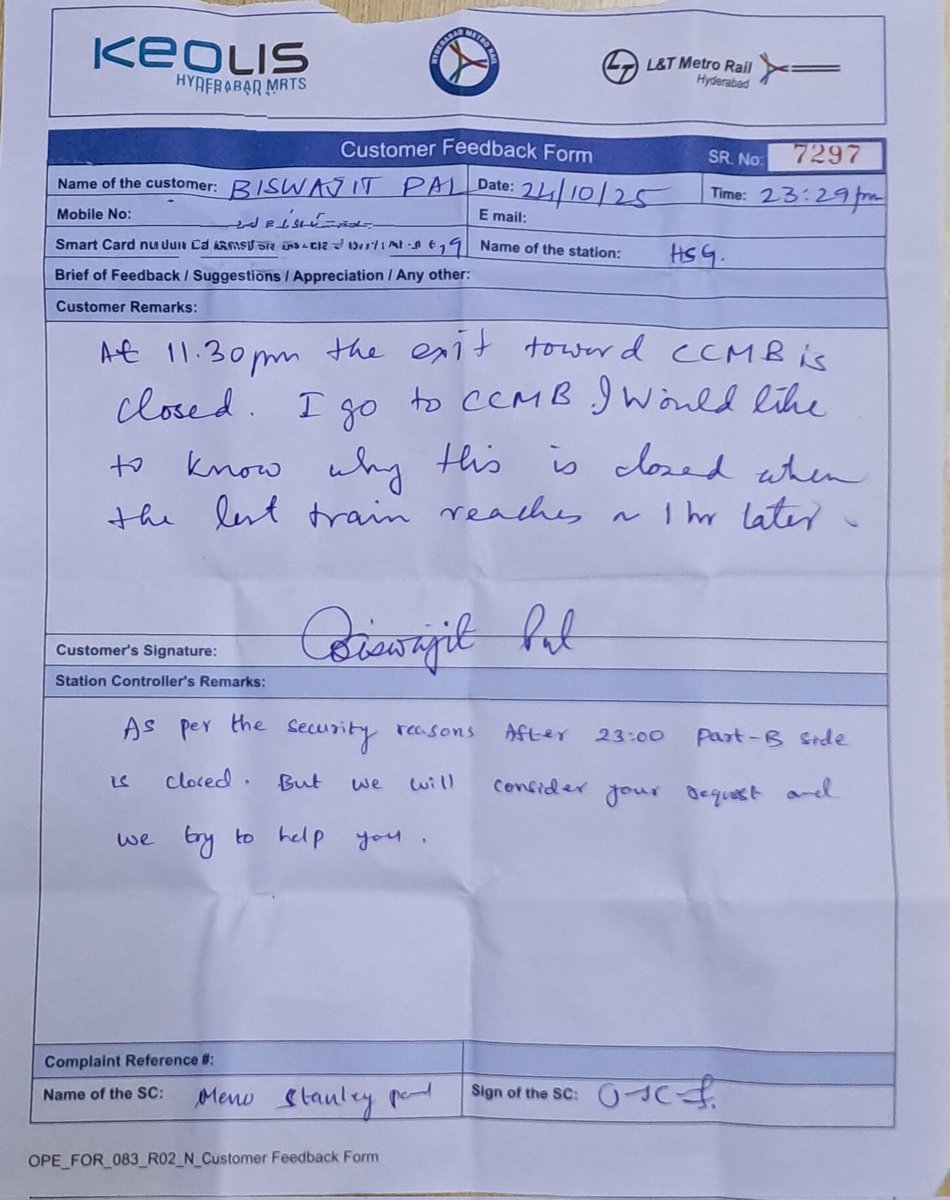 KEOLIS
HYDERABAD MRTS
HYDERABAD METRO RAIL
LT L&T Metro Rail
Hyderabad
Customer Feedback Form SR. No: 7297
Name of the customer: BISWAJIT PAL Date: 24/10/25 Time: 23:29pm
Mobile No: E mail:
Smart Card Name of the station: HSG.
Brief of Feedback / Suggestions / Appreciation / Any other:
Customer Remarks:
At 11.30pm the exit toward CCMB is
closed. I go to CCMB. I would like
to know why this is closed when
the last train reaches ~ 1 hr later.
Customer's Signature: Biswajit Pal
Station Controller's Remarks:
As per the security reasons After 23:00 Part-B side
is closed. But we will consider your request and
we try to help you.
Complaint Reference #:
Name of the SC: Stanley Sign of the SC:
OPE_FOR_083_R02_N_Customer Feedback Form